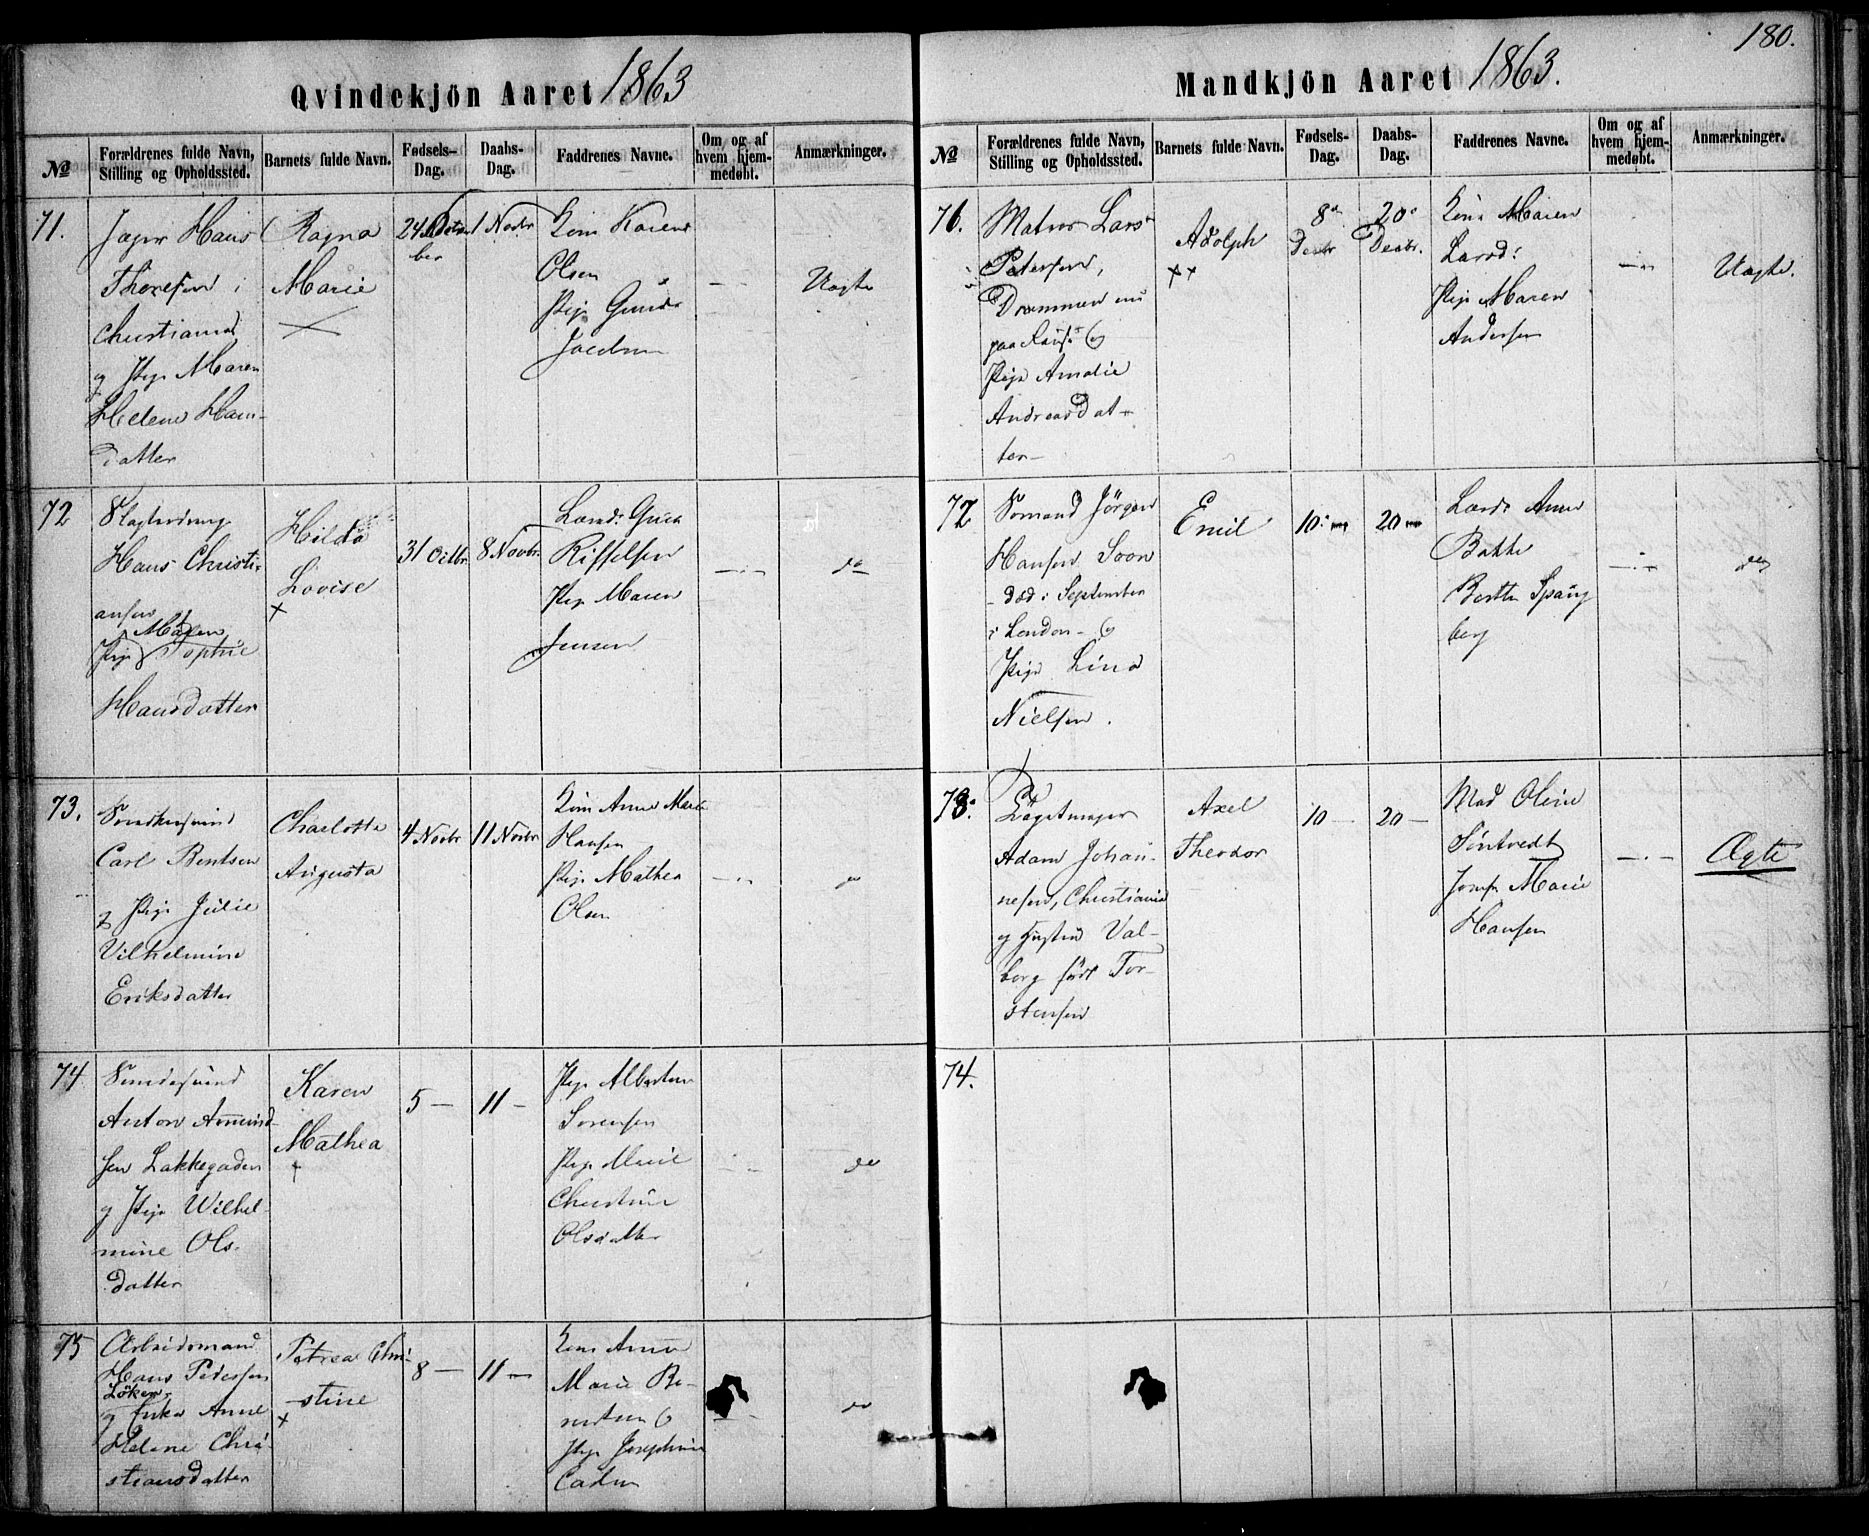 180.
Qvindekjön Aaret 1863
№
Forældrenes fulde Navn, Stilling og Opholdssted.
Barnets fulde Navn.
Fødsels-Dag.
Daabs-Dag.
Faddrenes Navne.
Om og af hvem hjem-medøbt.
Anmærkninger.
71.
Jæger Hans
Thoresen i
Christiania
og Pige Maren
Helene Hans-
datter
Ragna
Marie
24 Octo
ber
1 Novbr
Kone Karen
Olsen
Pige
Jacobsen
Uægte
72
Hans Christi-
ansen
Maren
Pige Sophie
Hansdatter
Hilda
Lovise
31 Octbr
8 Novbr.
Pige Maren
Jensen
do
73.
Carl Bentsen
og Pige Julie
Vilhelmine
Eriksdatter
Charlotte
Augusta
4 Novbr
11 Novbr
Kone Anne Marie
Hansen
Pige Mathea
Olsen
do
74
Anton Amund-
sen Lakkegaden
og Pige Wilhel-
mine Ols-
datter
Karen
Mathea
5 —
11 —
Pige
Sørensen
Pige Marie
Christine
Olsdatter
do
75
Arbeidsmand
Hans Pedersen
Löken
og Enke Anne
Helene Chri-
stiansdatter
Petrea Chri-
stine
8 —
11 —
Kone Anne
Marie
Pige Josephine
do
Mandkjön Aaret 1863.
№
Forældrenes fulde Navn, Stilling og Opholdssted.
Barnets fulde Navn.
Fødsels-Dag.
Daabs-Dag.
Faddrenes Navne.
Om og af hvem hjem-medøbt.
Anmærkninger.
71.
Matros Lars
Petersen,
Drammen nu
paa
Pige Amalie
Andreasdat-
ter
Adolph
8
Decbr
20
Decbr.
Kone Maren
Larsd:
Pige Maren
Andersen
Uægte.
72
Sømand Jörgen
Hansen Soon
død i September
i London - og
Pige Lina
Nielsen.
Emil
10
20
Anne
Bakke
Berthe Spang
berg
do
73.
Adam Johan-
nesen, Christiania
og Hustru Val-
borg født Tor-
stensen
Axel
Theodor
10 —
20 —
Mad Oline
Jomfr Marie
Hansen
Ægte
74.